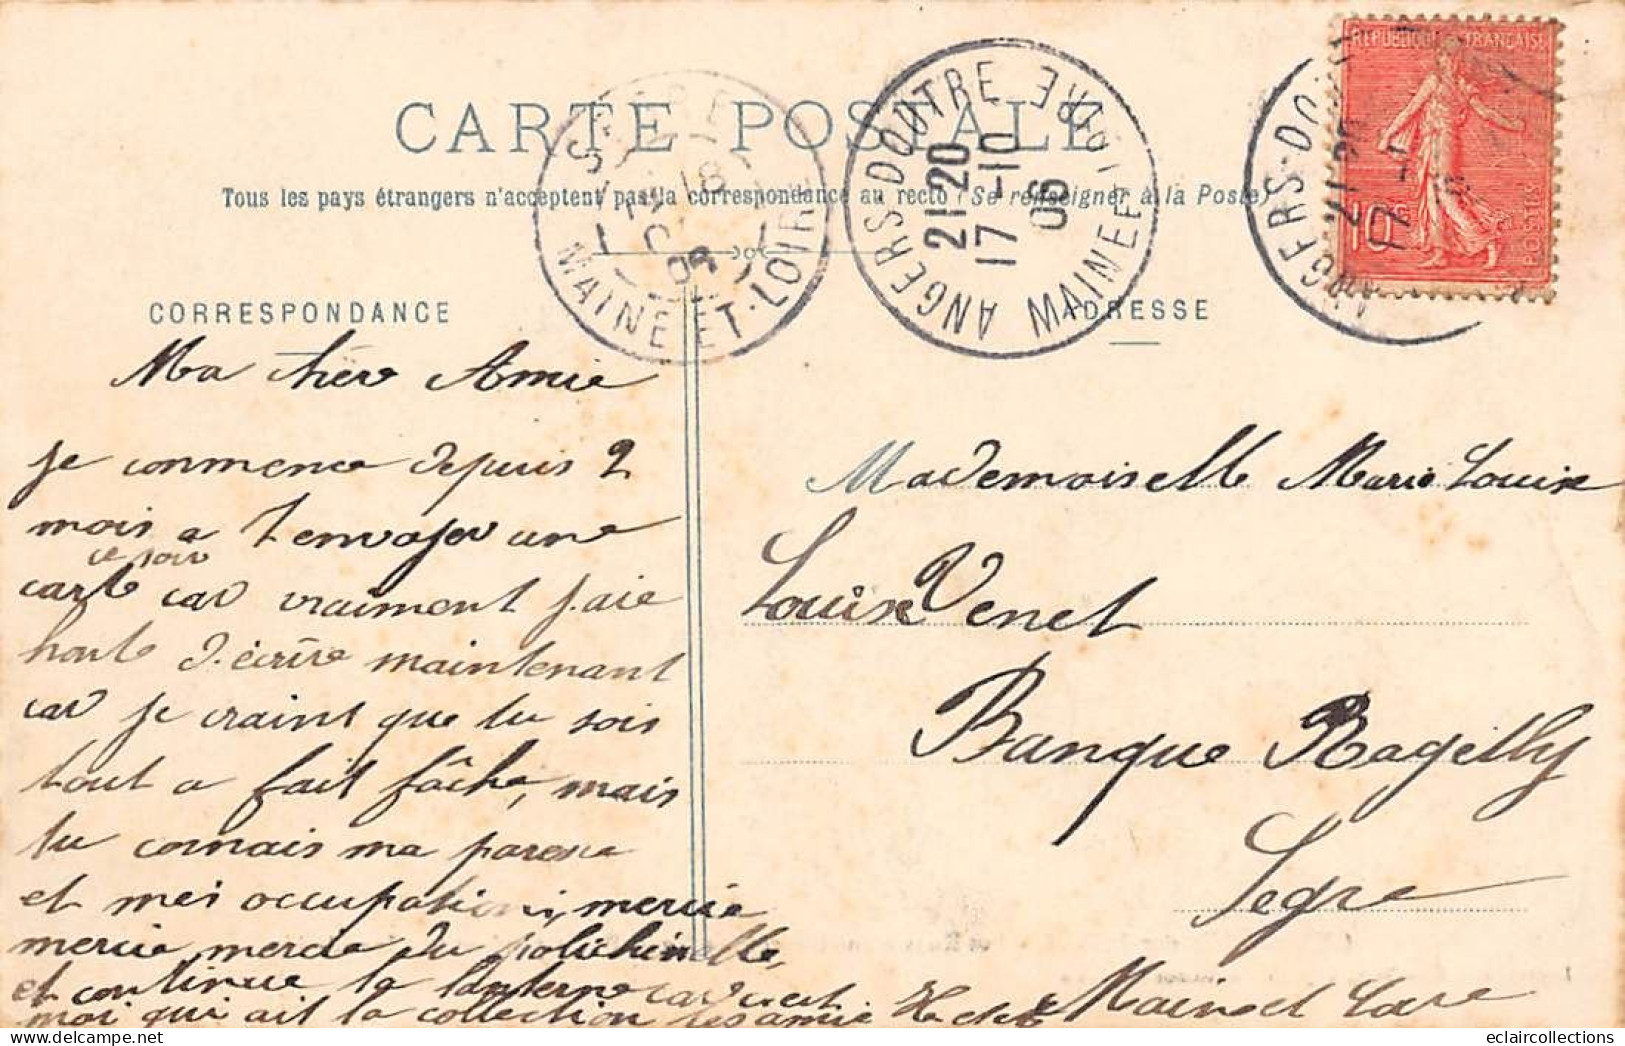 CARTE POSTALE
Tous les pays étrangers n'acceptent pas la correspondance au recto (Se renseigner à la Poste)
CORRESPONDANCE
ADRESSE
REPUBLIQUE FRANÇAISE
10c
POSTES
ANGERS-DOUTRE
21 20
17 -10
06
MAINE ET LOIRE
SEGRE
18
MAINE-ET-LOIRE
ANGERS-DOU
21 20
17 -1
Ma chère Amie
je commence depuis 2
mois a t envoyer une
ce soir
carte car vraiment j.aie
honte d.écrire maintenant
car je craint que tu sois
tout a fait fâche, mais
tu connais ma paresse
et mes occupations, mercie
mercie mercie du polichinelle,
et continue la lanterne car c'est
moi qui ait la collection
Mademoiselle Marie Louise
Louise Venet
Banque Ragelly
Segre
Maine et Loire
eclaircollections